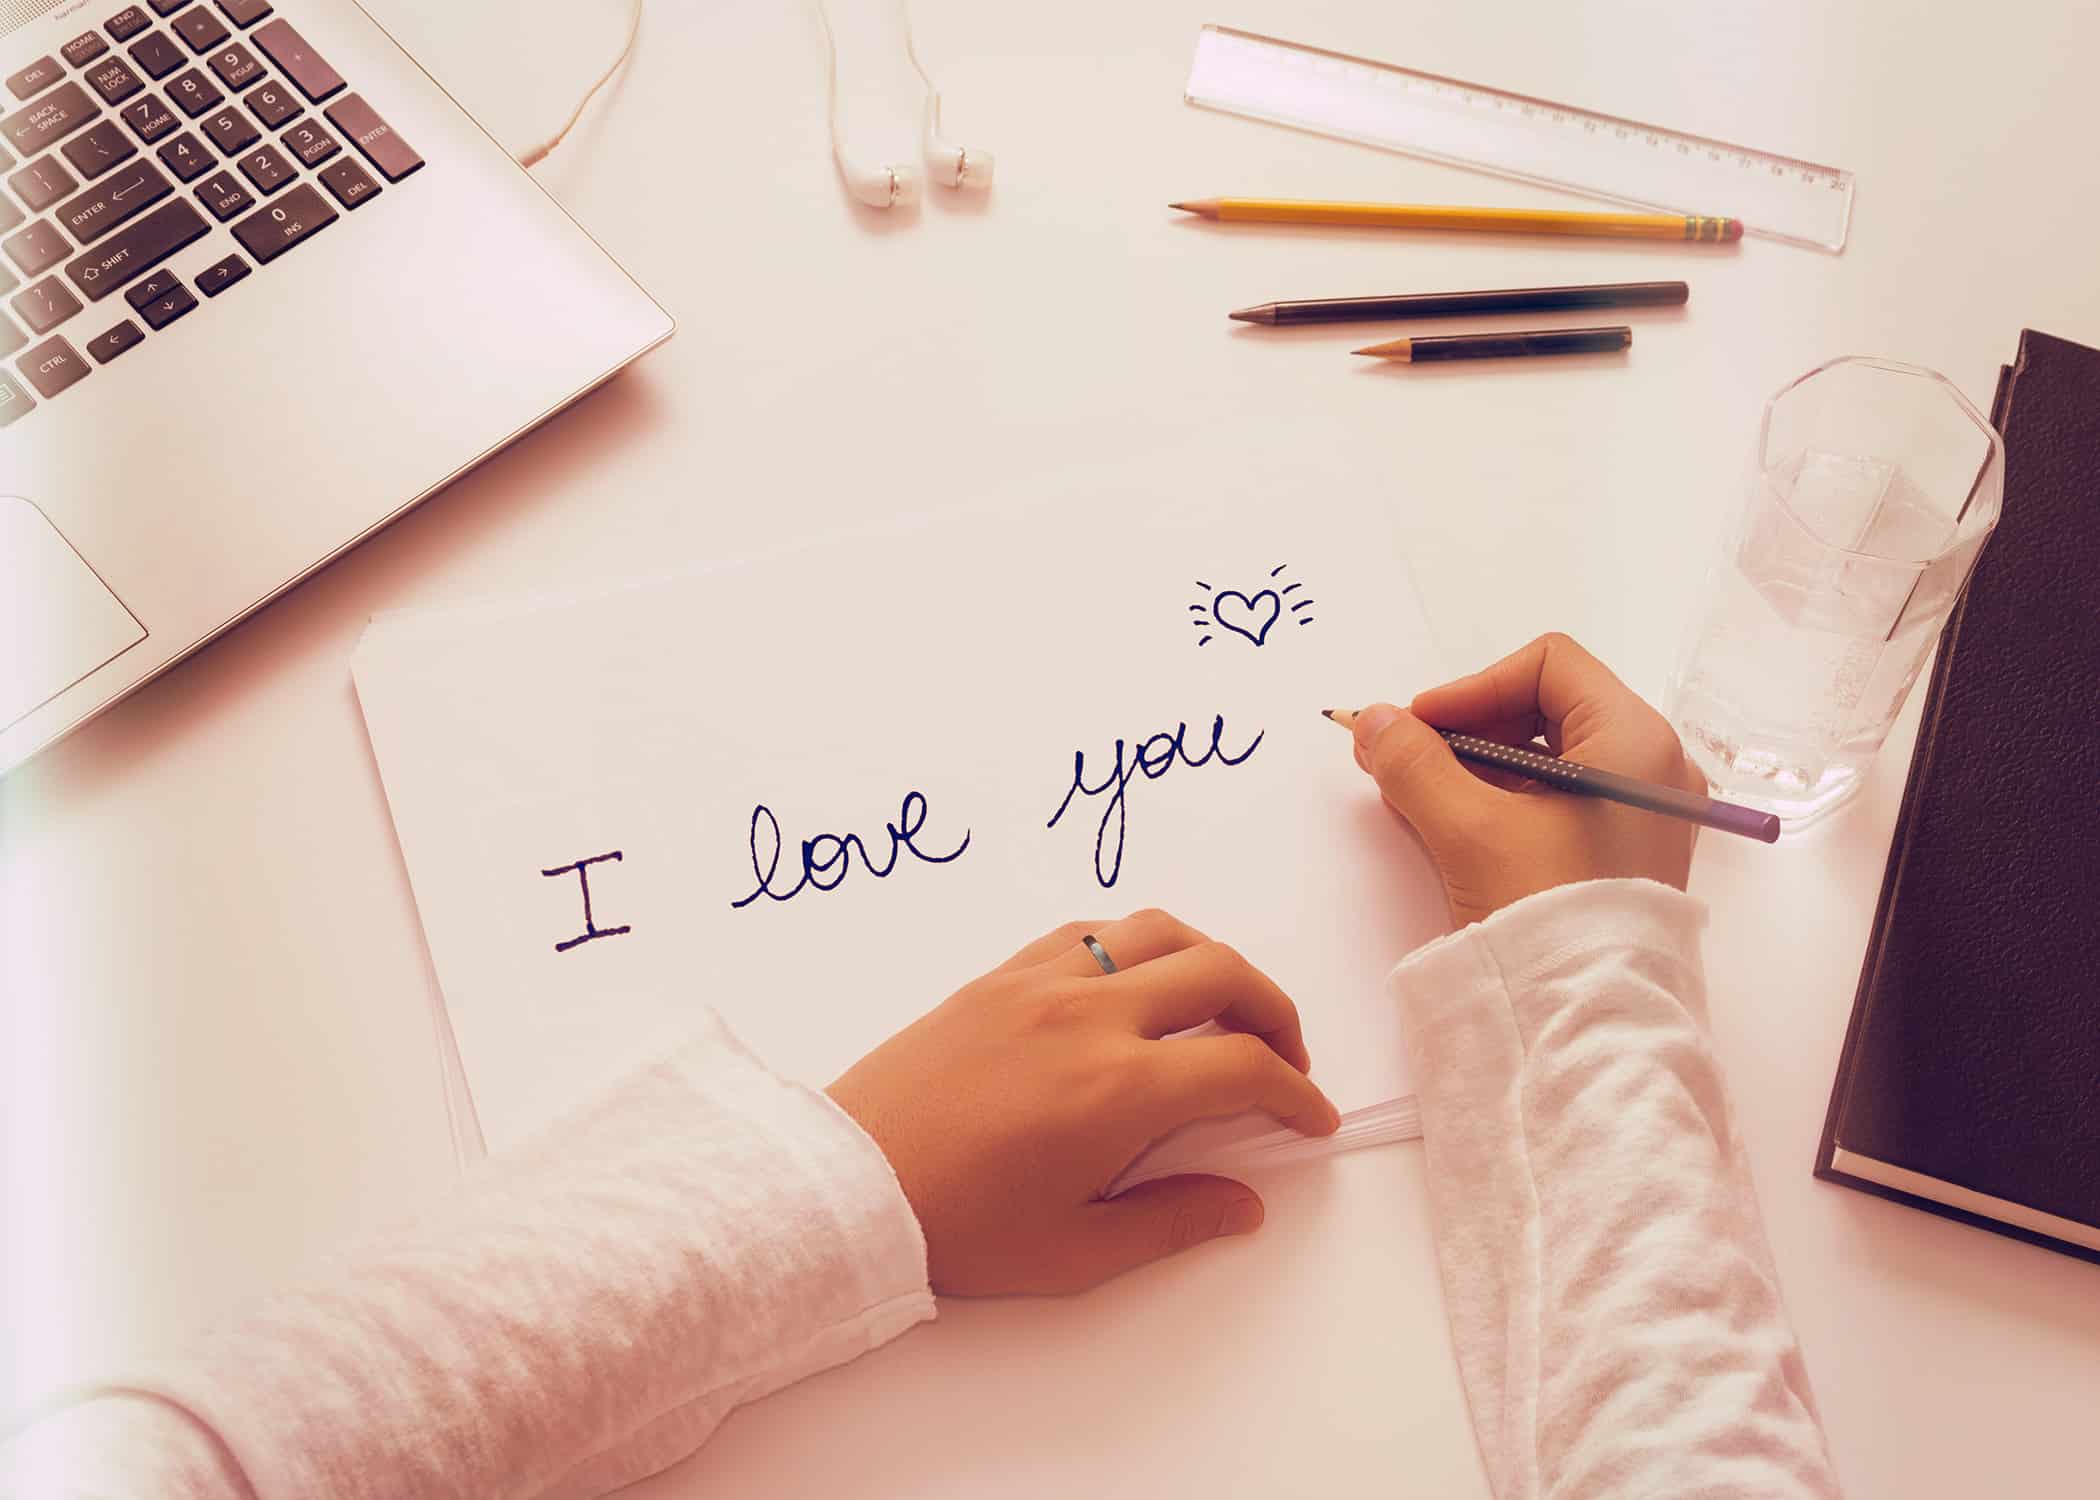 I love you
harman
END
HOME
DEL
NUM LOCK
/
*
9 PGUP
+
BACK SPACE
7 HOME
8
6
5
4
3 PGDN
ENTER
ENTER
1 END
2
DEL
SHIFT
0 INS
CTRL
20